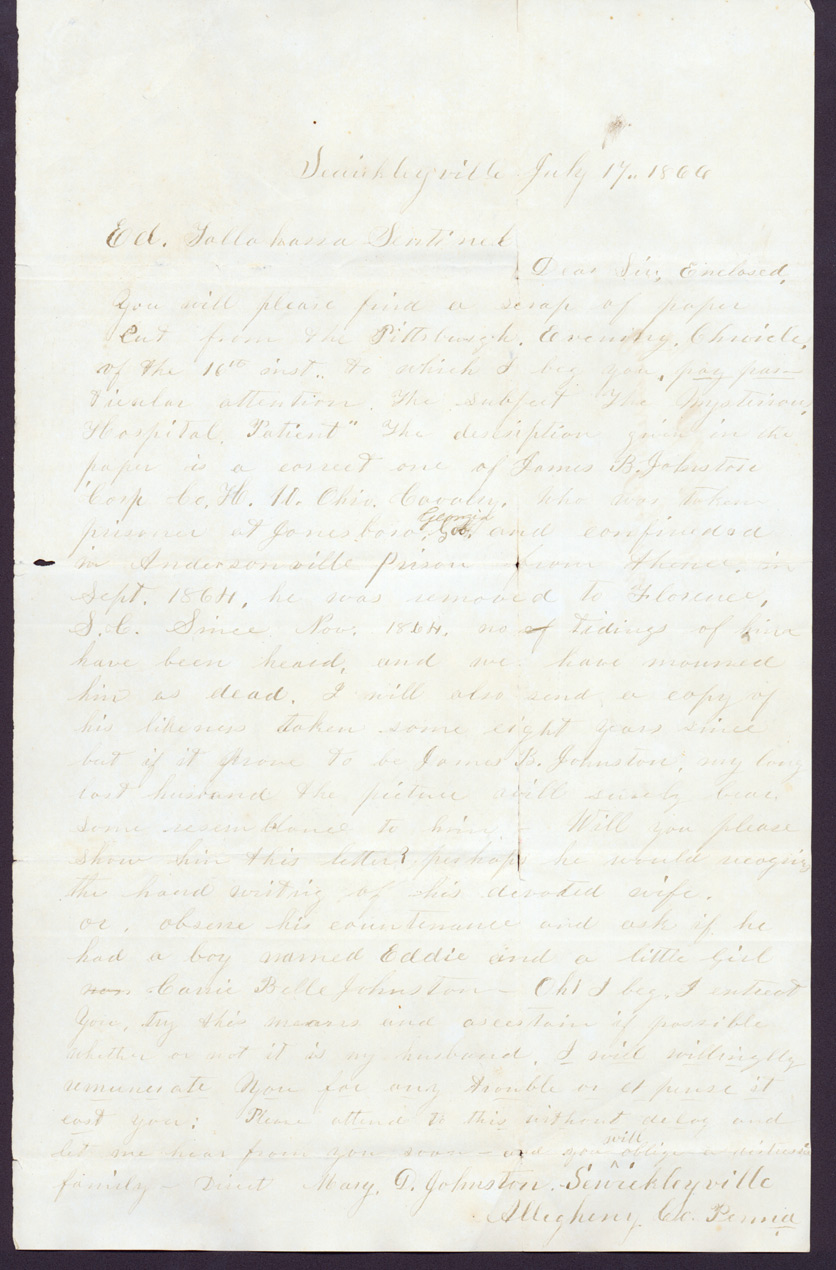 Sewickleyville July 17., 1866
Ed. Tallahassa Sentinel
Dear Sir, Enclosed,
You will please find a scrap of paper
Cut from the Pittsburgh. Evening. Chnicle,
of the 16th inst., to which I beg you, pay par-
ticular attention. The subject "The Mysterious
Hospital, Patient" The desription given in the
paper is a correct one of James B. Johnston
Corp Co, H. 11. Ohio. Cavalry. who was taken
prisoner at Jonesboro, Georgia Geo. and confineded
in Andersonville Prison from thence, in
Sept. 1864, he was removed to Florence,
S. C. Since Nov. 1864. no of tidings of him
have been heard, and we have mourned
him as dead. I will also send a copy of
his likeness taken some eight years since
but if it prove to be James B. Johnston, my long
lost husband the picture will surely bear
some resemblance to him - Will you please
show him this letter? perhaps he would recogniz
the hand writing of his devoted wife.
or, observe his countenance and ask if he
had a boy named Eddie and a little Girl
Carrie Belle Johnston - Oh! I beg, I entreat
You, try this means and ascertain if possible
whether or not it is my husband. I will willingly
remunerate You for any trouble or expense it
cost you: Please attend to this without delay and
let me hear from you soon - and you will oblige a
family - Direct Mary. D. Johnston. Sewickleyville
Allegheny Co. Pennia